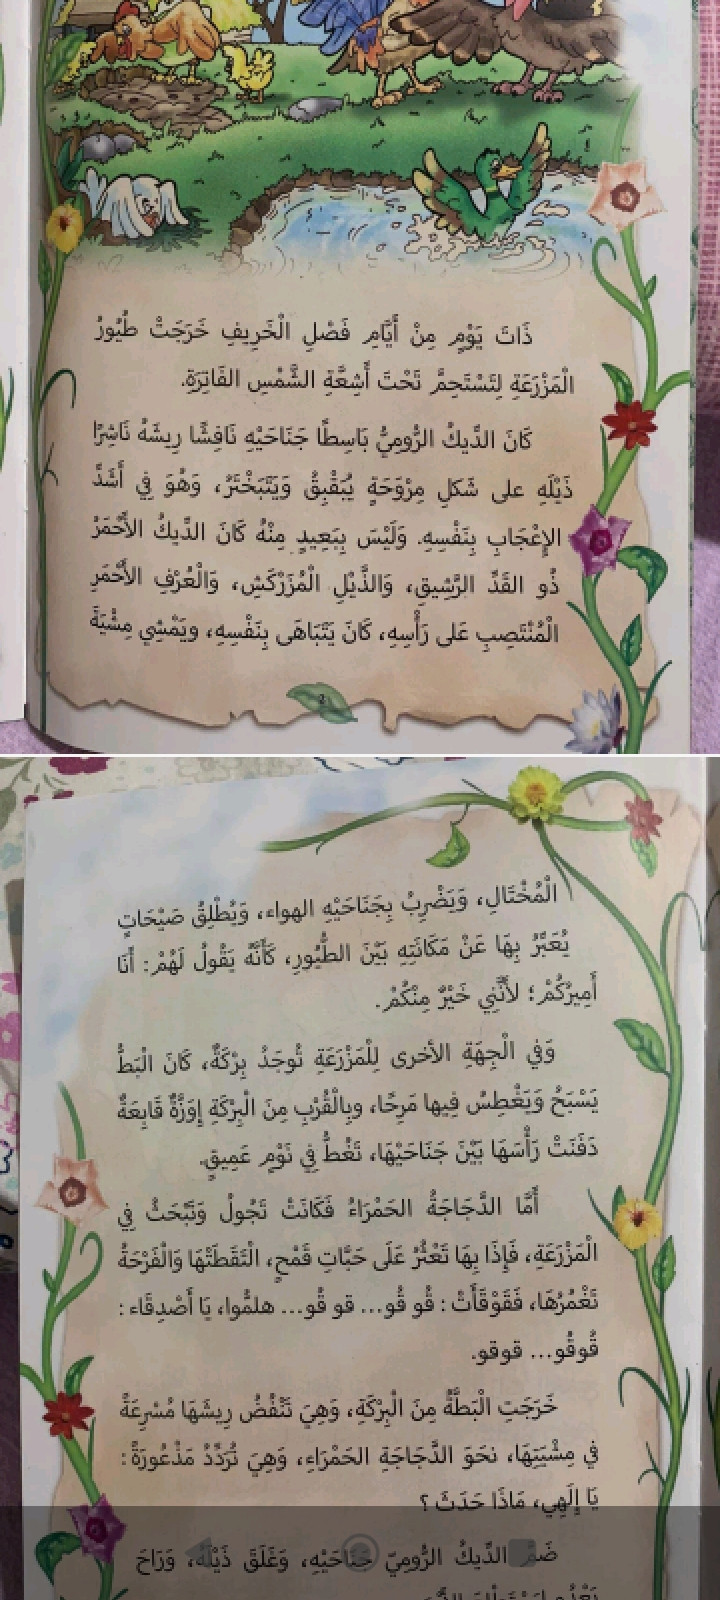 ذَاتَ يَوْمٍ مِنْ أَيَّامِ فَصْلِ الْخَرِيفِ خَرَجَتْ طُيُورُ
الْمَزْرَعَةِ لِتَسْتَحِمَّ تَحْتَ أَشِعَّةِ الشَّمْسِ الفَاتِرَةِ.
كَانَ الدِّيكُ الرُّومِيُّ بَاسِطًا جَنَاحَيْهِ نَافِشًا رِيشَهُ نَاشِرًا
ذَيْلَهِ على شَكلِ مِرْوَحَةٍ يُبَقْبِقُ وَيَتَبَخْتَرُ، وَهُوَ فِي أَشَدِّ
الإِعْجَابِ بِنَفْسِهِ. وَلَيْسَ بِبَعِيدٍ مِنْهُ كَانَ الدِّيكُ الأَحْمَرُ
ذُو القَدِّ الرَّشِيقِ، وَالذَّيْلِ الْمُزَرْكَشِ، وَالْعُرْفِ الأَحْمَرِ
الْمُنْتَصِبِ عَلى رَأْسِهِ، كَانَ يَتَبَاهَى بِنَفْسِهِ، ويَمْشِي مِشْيَةَ
2
الْمُخْتَالِ، وَيَضْرِبُ بِجَنَاحَيْهِ الهواء، وَيُطْلِقُ صَيْحَاتٍ
يُعَبِّرُ بِهَا عَنْ مَكَانَتِهِ بَيْنَ الطُّيُورِ، كَأَنَّهُ يَقُولُ لَهُمْ: أَنَا
أَمِيرُكُمْ؛ لأَنَّنِي خَيْرٌ مِنْكُمْ.
وَفي الْجِهَةِ الأخرى لِلْمَزْرَعَةِ تُوجَدُ بِرْكَةٌ، كَانَ الْبَطُّ
يَسْبَحُ وَيَغْطِسُ فِيها مَرِحًا، وبِالْقُرْبِ مِنَ الْبِرْكَةِ إِوَزَّةٌ قَابِعَةٌ
دَفَنَتْ رَأْسَهَا بَيْنَ جَنَاحَيْهَا، تَغُطُّ فِي نَوْمٍ عَمِيقٍ.
أَمَّا الدَّجَاجَةُ الحَمْرَاءُ فَكَانَتْ تَجُولُ وَتَبْحَثُ فِي
الْمَزْرَعَةِ، فَإِذَا بِهَا تَعْثُرُ عَلَى حَبَّاتِ قَمْحٍ، الْتَقَطَتْهَا وَالْفَرْحَةُ
تَغْمُرُهَا، فَقَوْقَأَتْ : قُو قُو... قو قُو... هلمُّوا، يَا أَصْدِقَاء :
قُوقُو... قوقو.
خَرَجَتِ الْبَطَّةُ مِنَ الْبِرْكَةِ، وَهِيَ تَنْفُضُ رِيشَهَا مُسْرِعَةً
فِي مِشْيَتِهَا، نحَوَ الدَّجَاجَةِ الحَمْرَاءِ، وَهِيَ تُرَدِّدُ مَذْعُورَةً :
يَا إِلَهِي، مَاذَا حَدَثَ ؟
ضَمَّ الدِّيكُ الرُّومِيّ جَنَاحَيْهِ، وَغَلَقَ ذَيْلَهُ، وَرَاحَ